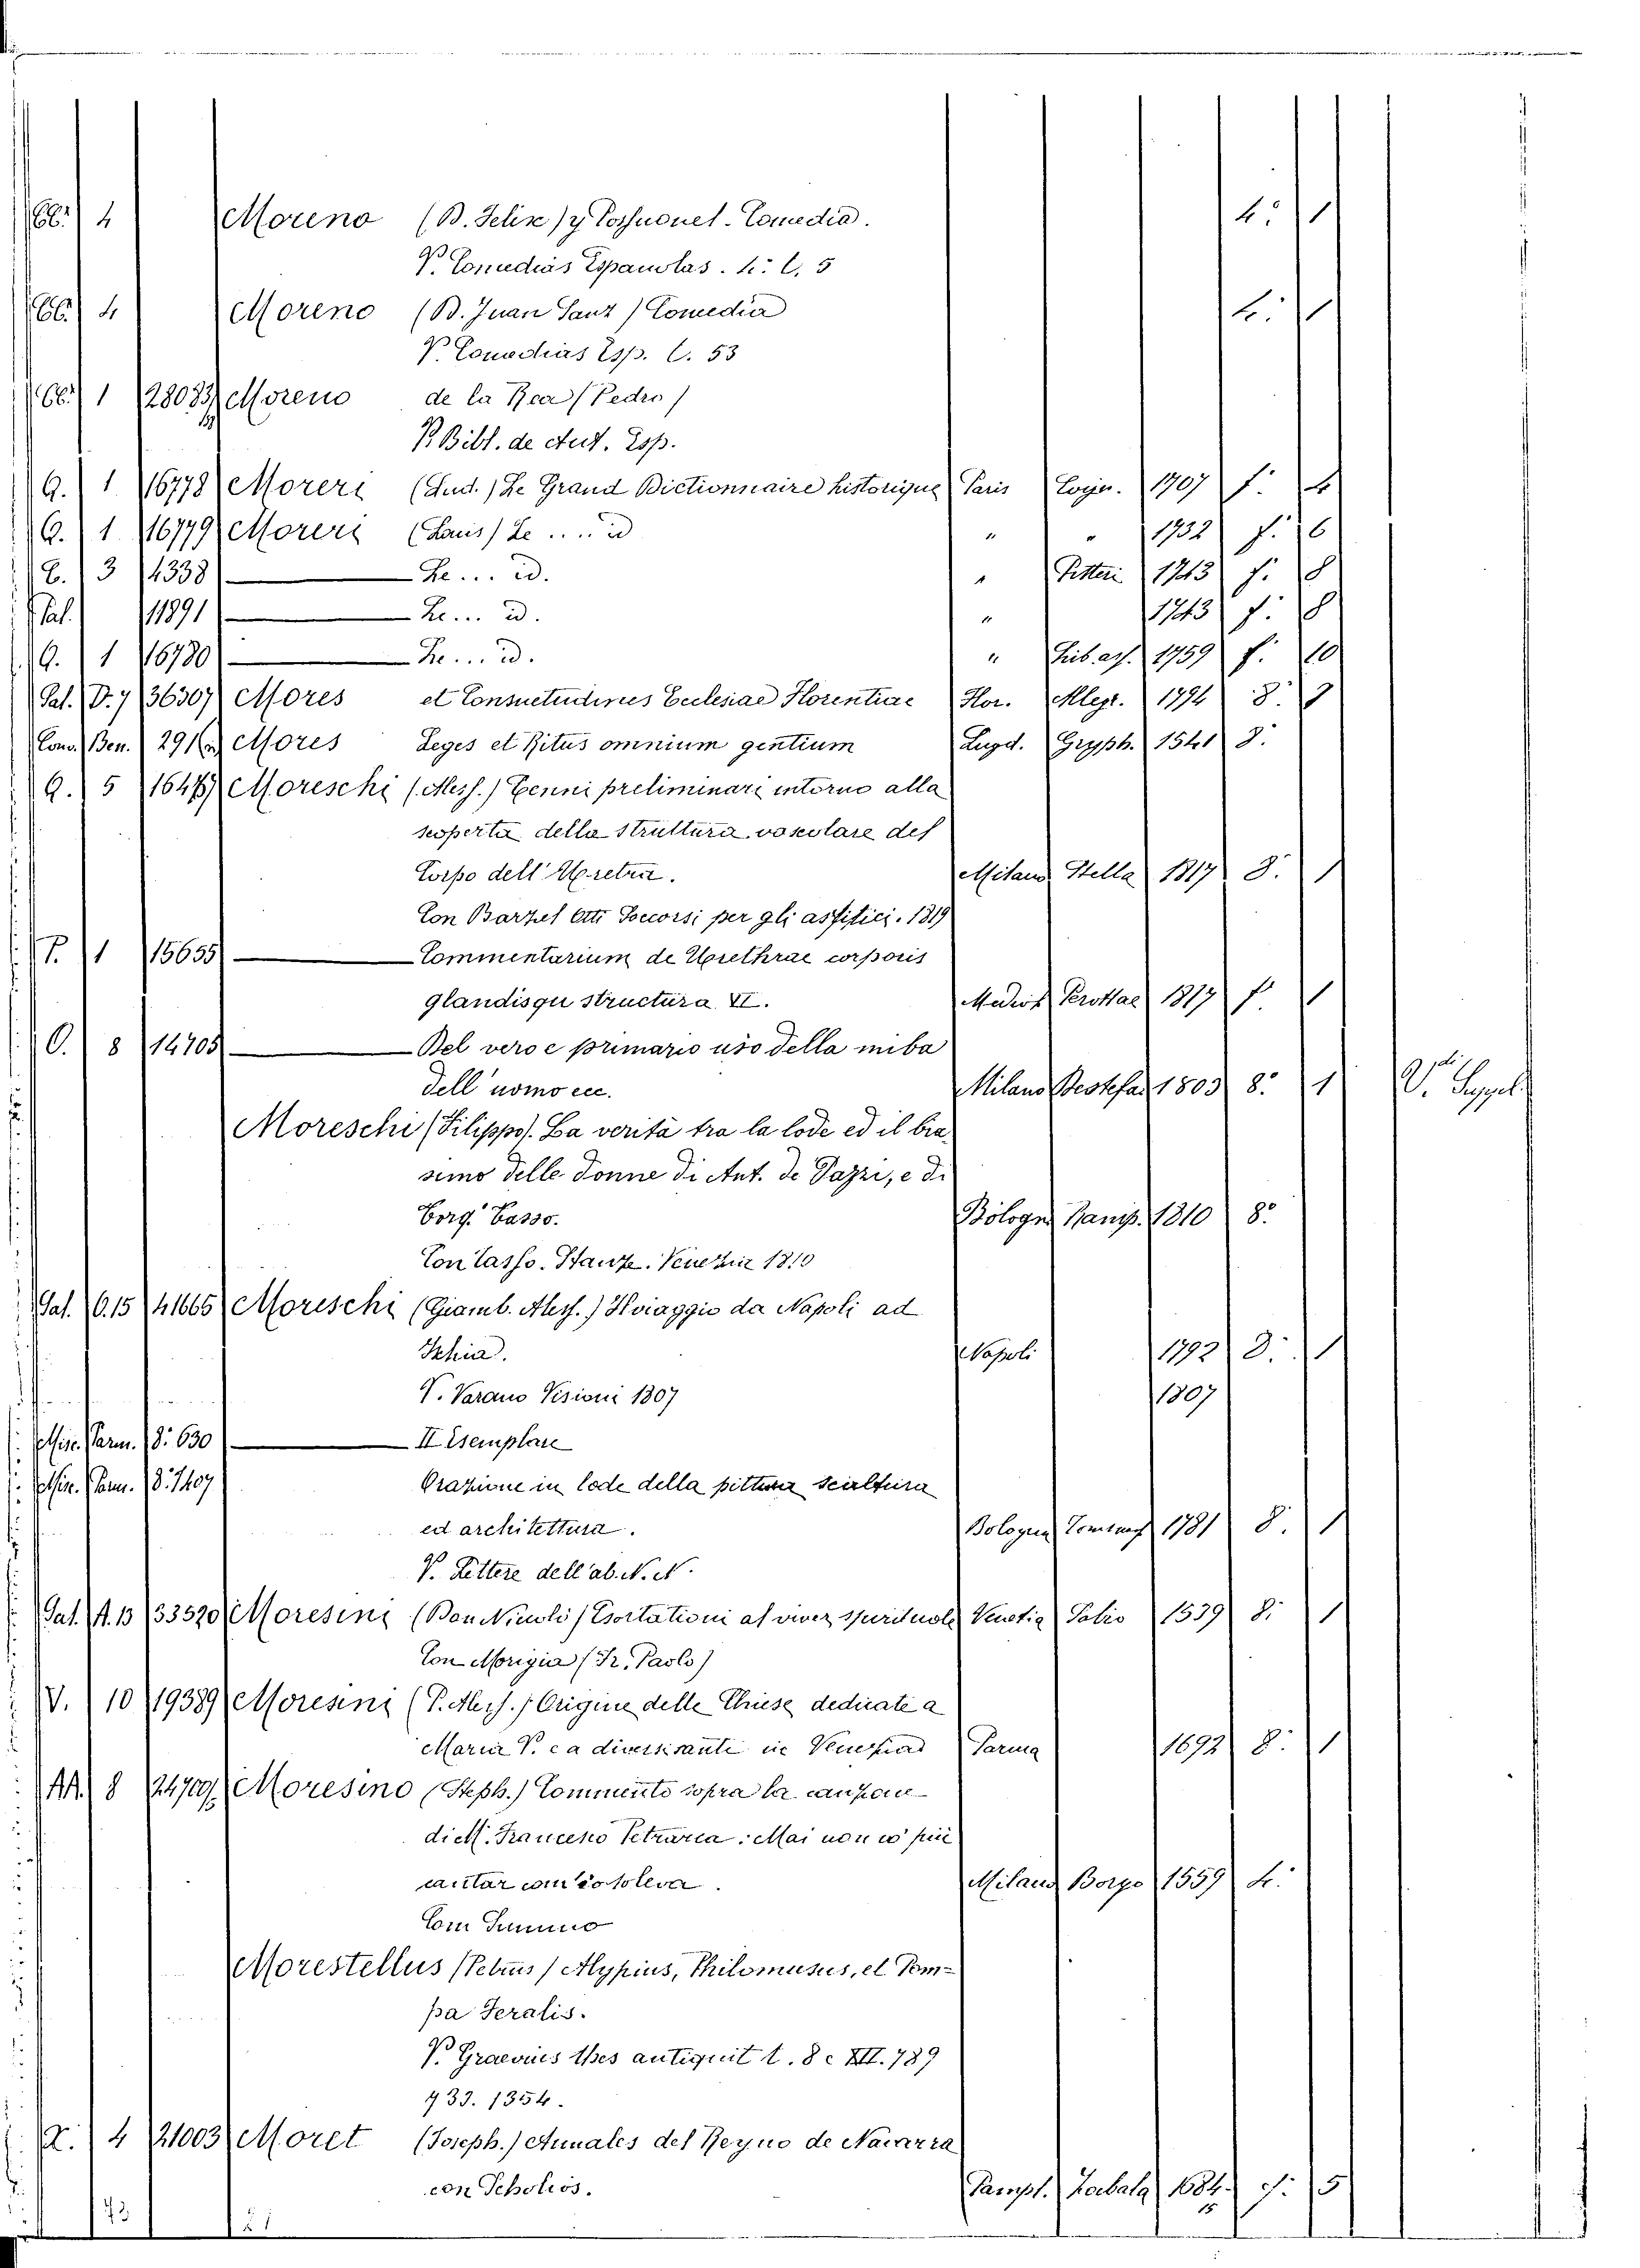 66: 4 Moreno (B. Felixe) y Posmonet. Comedia. 4: 1
V. Comedias Espanolas. 4: t. 5
66. 4 Moreno (B. Juan Sanz) Comedia 4. 1
V. Comedias Esp. t. 53
66. 1 28083 Moreno de la Rea (Pedro)
V. Bibl. de Aut. Esp.
G. 1 16778 Moreri (Lud.) Le Grand Dictionnaire historique Paris Coign. 1707 f. 4
G. 1 16779 Moreri (Louis) Le .... id " " 1732 f. 6
E. 3 4338 — Le ... id. " Pitteri 1743 f. 8
Pal. 11891 — Le ... id. " 1743 f. 8
G. 1 16780 — Le ... id. " Lib. ass. 1759 f. 10
Pal. D. 7 36307 Mores et Consuetudines Ecclesiae Florentiae Flor. Allegr. 1794 8. 1
Conv. Ben. 291 Mores Leges et Ritus omnium gentium Lugd. Gryph. 1541 8.
G. 5 1647 Moreschi (Aless.) Cenni preliminari intorno alla
scoperta della struttura vascolare del
Corpo dell' Uretra. Milano Stella 1817 8. 1
Con Barzel Atti Soccorsi per gli asfitici. 1819
P. 1 15655 — Commentarium de Urethrae corporis
glandisqu structura VI. Mediol. Perottae 1817 f. 1
O. 8 14705 — Del vero e primario uso della milza
dell' uomo ecc. Milano Destefan 1803 8. 1 V. di Suppel.
Moreschi (Filippo). La verità tra la lode ed il bia-
simo delle donne di Ant. de Pazzi, e di
Torq. Tasso. Bologna Ramp. 1810 8.
Con Tasso. Stanze. Venezia 1810
Pal. C. 15 41665 Moreschi (Giamb. Aless.) Il viaggio da Napoli ad
Ischia. Napoli 1792 8. 1
V. Varano Visioni 1807 1807
Misc. Parm. 8: 630 — II Esemplare
Misc. Parm. 8: 1407 Orazione in lode della pittura scultura
ed architettura. Bologna 1781 8. 1
V. Lettere dell' ab. N. N.
Pal. A. 13 33520 Moresini (Bon Nicolò) Esortationi al viver spirituale Venetia Sabio 1539 8. 1
Con Morigia (Fr. Paolo)
V. 10 19389 Moresini (P. Aless.) Origine delle Chiese dedicate a
Maria V. ea diversi santi in Venezia Parma 1692 8. 1
AA. 8 24701 Moresino (Steph.) Commento sopra la canzone
di M. Francesco Petrarca: Mai non vo' più
cantar com' io soleva. Milano Borgo 1559 4.
Con Summo
Morestellus (Petrus) Alypius, Philomusus, et Pom-
pa Feralis.
V. Graevius thes antiquit t. 8 e XII. 789
733. 1354.
X. 4 21003 Moret (Joseph.) Annales del Reyno de Navarra
con Scholios. Pampl. Zabala 1684. f. 5
15
73 21